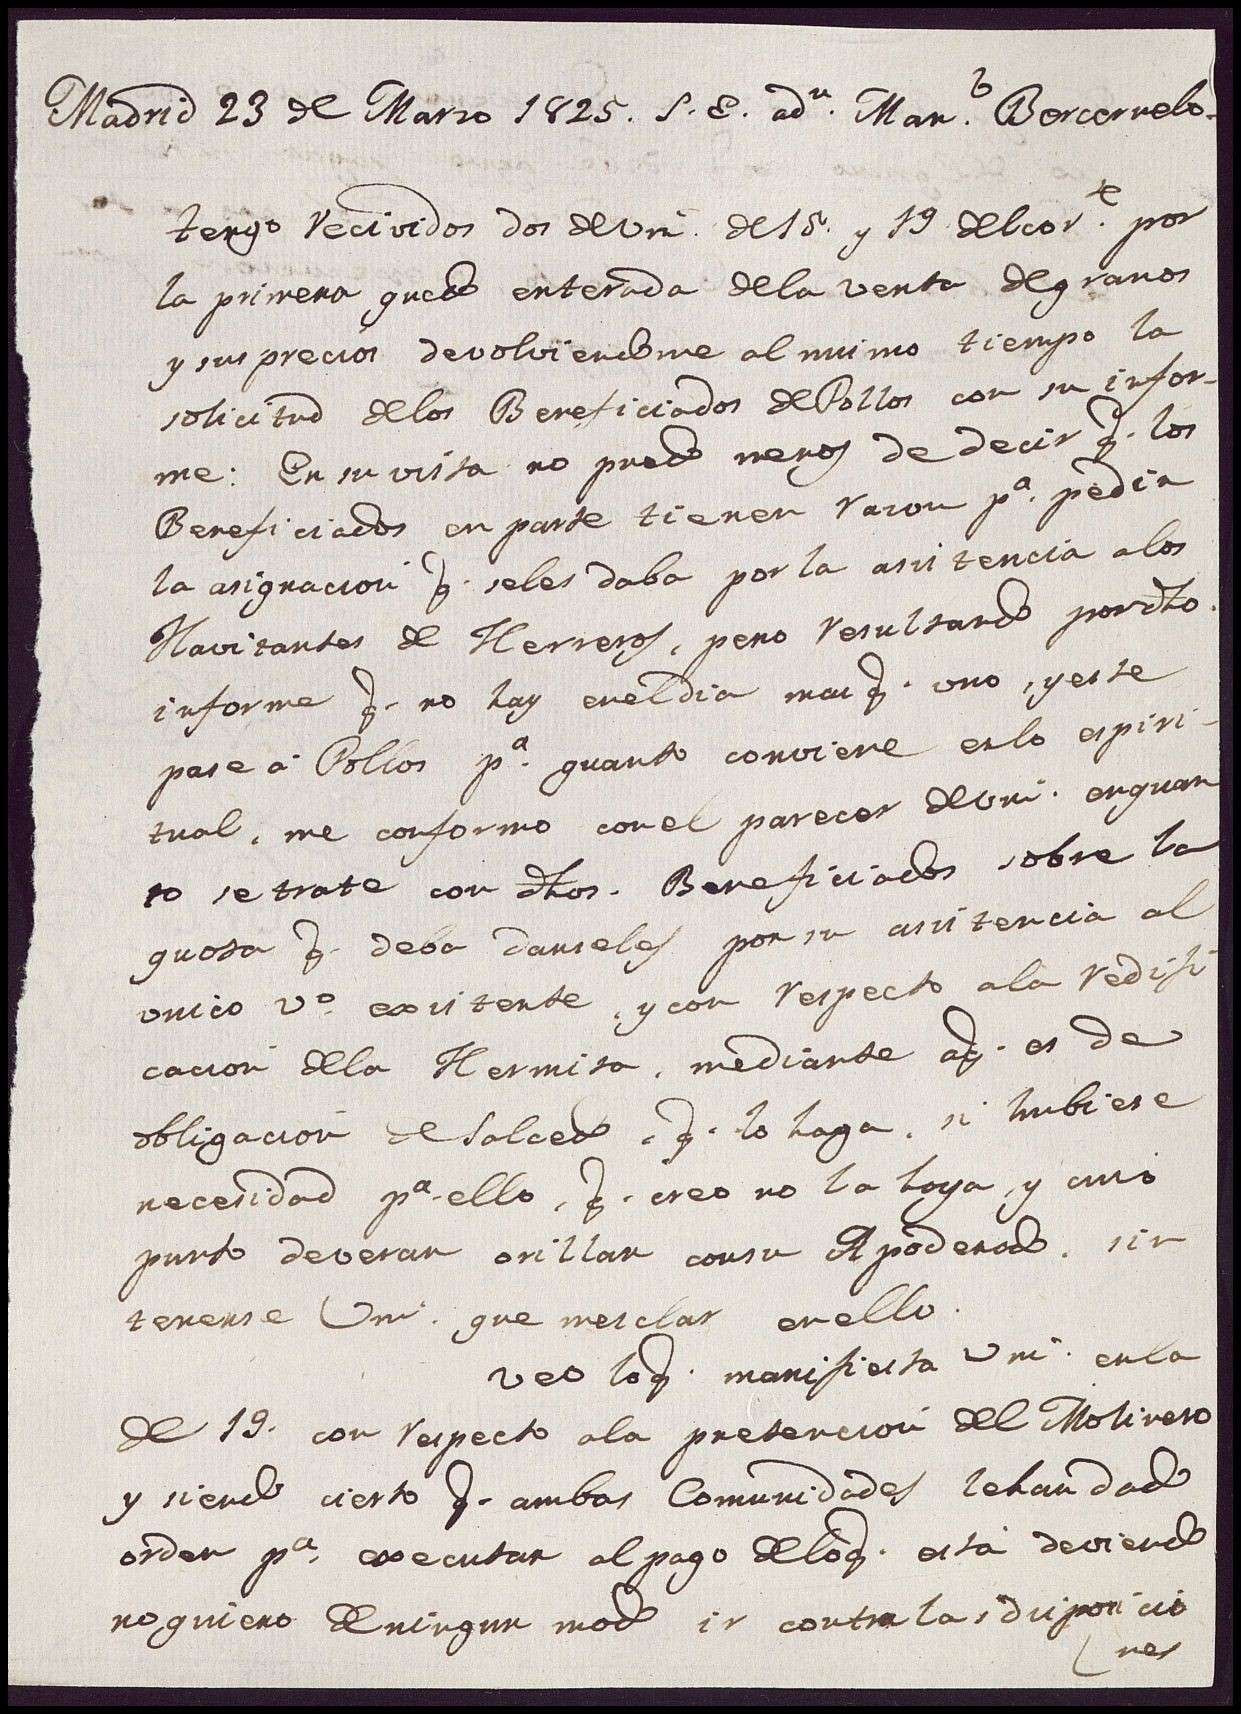 Madrid 23 de Marzo 1825. S. E. a dn. Man. Bercervelo.
tengo recividos dos de Vm. de 15. y 19 del corte. por
la primera quedo enterada dela venta de granos
y sus precios devolviendome al mismo tiempo la
solicitud delos Beneficiados de Pollos con su infor-
me: En su vista no puedo menos de decir q. los
Beneficiados en parte tienen razon pa. pedir
la asignacion q. seles daba por la asistencia alos
Havitantes de Herreros, pero resultando por dho.
informe q. no hay enel dia mas q. uno, y este
pase á Pollos pa. quanto conviene enlo espiri-
tual, me conformo conel parecer de Vm. enquan
to se trate con dhos. Beneficiados sobre la
quota q. deba darseles por su asistencia al
unico vo. existente, y con respecto ala redifi
cacion dela Hermita, mediante aq. es de
obligacion de Salcedo, q. lo haga, si hubiese
necesidad pa. ello, q. creo no la haya, y cuio
punto deveran orillar consu Apoderado, sin
tenerse Vm. que mesclar enello.
Veo loq. manifiesta Vm. enla
de 19. con respecto ala pretencion del Molinero
y siendo cierto q. ambas Comunidades lehan dado
orden pa. executar al pago deloq. está deviendo
no quiero deningun modo ir contra las disposicio
nes